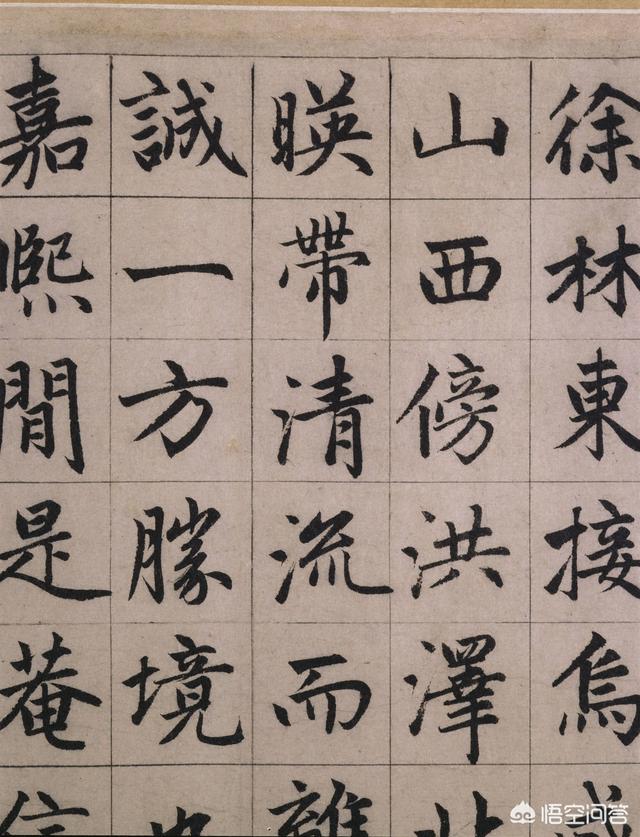 徐林東接烏
山西傍洪澤
暎帶清流而離
誠一方勝境
嘉熈間是菴信
悟空问答